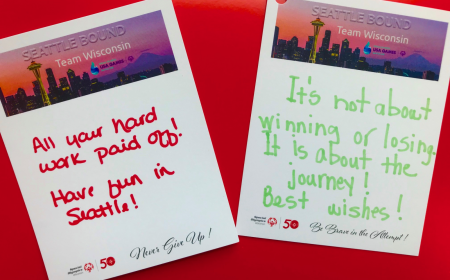 SEATTLE BOUND
Team Wisconsin
USA GAMES
All your hard
work paid off!
Have fun in
Seattle!
Special
Olympics
50
Never Give Up!
SEATTLE BOUND
Team Wisconsin
USA GAMES
It's not about
winning or losing.
It is about the
journey!
Best wishes!
Special
Olympics
50
Be Brave in the Attempt!